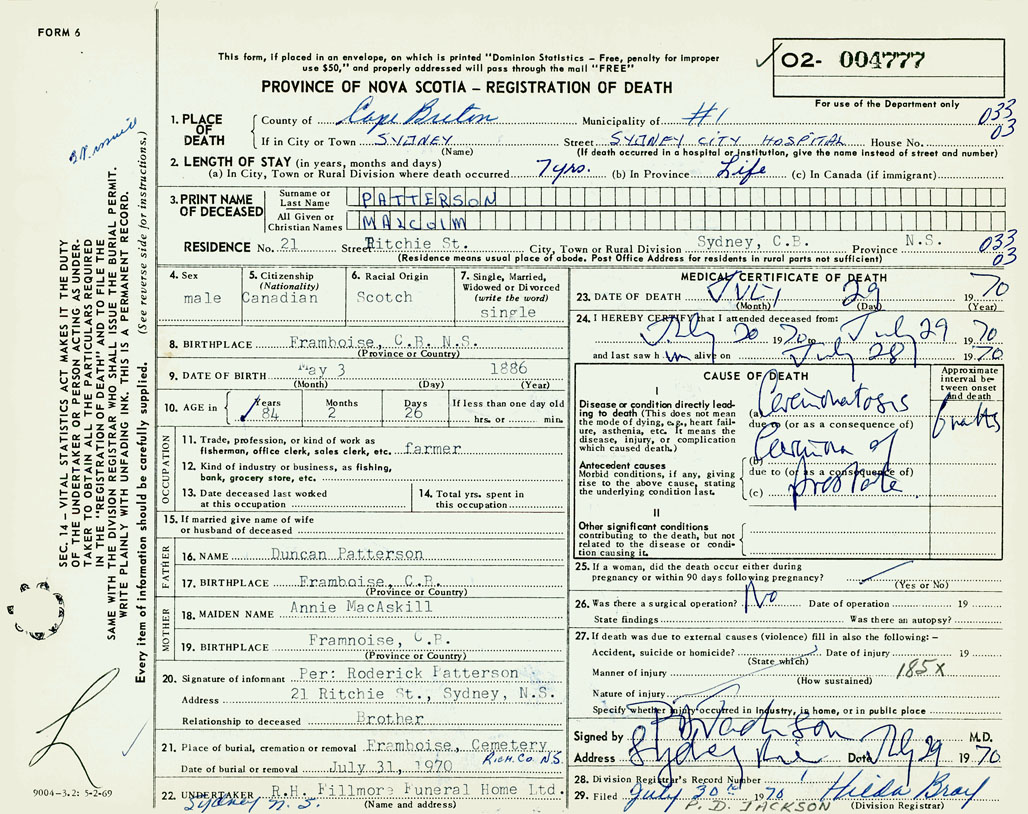 FORM 6
This form, if placed in an envelope, on which is printed "Dominion Statistics – Free, penalty for improper
use $50," and properly addressed will pass through the mail "FREE"
✓ 02- 004777
For use of the Department only
PROVINCE OF NOVA SCOTIA – REGISTRATION OF DEATH
1. PLACE OF DEATH
County of Cape Breton Municipality of #1 033
If in City or Town SYDNEY Street SYDNEY CITY HOSPITAL House No. 03
(Name) (If death occurred in a hospital or institution, give the name instead of street and number)
2. LENGTH OF STAY (in years, months and days)
(a) In City, Town or Rural Division where death occurred 7 yrs. (b) In Province Life (c) In Canada (if immigrant)
3. PRINT NAME OF DECEASED
Surname or Last Name PATTERSON
All Given or Christian Names MALCOLM
RESIDENCE No. 21 Street Ritchie St. City, Town or Rural Division Sydney, C.B. Province N.S. 033
03
(Residence means usual place of abode. Post Office Address for residents in rural parts not sufficient)
4. Sex
male
5. Citizenship
(Nationality)
Canadian
6. Racial Origin
Scotch
7. Single, Married,
Widowed or Divorced
(write the word)
single
8. BIRTHPLACE Framboise, C.B. N.S.
(Province or Country)
9. DATE OF BIRTH May 3 1886
(Month) (Day) (Year)
10. AGE in
Years 84
Months 2
Days 26
If less than one day old
hrs. or min.
OCCUPATION
11. Trade, profession, or kind of work as
fisherman, office clerk, sales clerk, etc. farmer
12. Kind of industry or business, as fishing,
bank, grocery store, etc.
13. Date deceased last worked
at this occupation
14. Total yrs. spent in
this occupation
15. If married give name of wife
or husband of deceased
FATHER
16. NAME Duncan Patterson
17. BIRTHPLACE Framboise, C.B.
(Province or Country)
MOTHER
18. MAIDEN NAME Annie MacAskill
19. BIRTHPLACE Framnoise, C.B.
(Province or Country)
20. Signature of informant Per: Roderick Patterson
Address 21 Ritchie St., Sydney, N.S.
Relationship to deceased Brother
21. Place of burial, cremation or removal Framboise, Cemetery
Rich. Co. N.S.
Date of burial or removal July 31, 1970
22. UNDERTAKER R.H. Fillmore Funeral Home Ltd.
Sydney N.S. (Name and address)
MEDICAL CERTIFICATE OF DEATH
23. DATE OF DEATH JULY 29 1970
(Month) (Day) (Year)
24. I HEREBY CERTIFY that I attended deceased from:
July 20 1970 to July 29 1970
and last saw h im alive on July 28 1970
CAUSE OF DEATH
Approximate
interval be-
tween onset
and death
I
Disease or condition directly lead-
ing to death (This does not mean
the mode of dying, e.g., heart fail-
ure, asthenia, etc. It means the
disease, injury, or complication
which caused death.)
(a) Carcinomatosis
due to (or as a consequence of)
Antecedent causes
Morbid conditions, if any, giving
rise to the above cause, stating
the underlying condition last.
(b) Carcinoma of
due to (or as a consequence of)
(c) prostate
II
Other significant conditions
contributing to the death, but not
related to the disease or condi-
tion causing it.
25. If a woman, did the death occur either during
pregnancy or within 90 days following pregnancy?
(Yes or No)
26. Was there a surgical operation? No Date of operation 19
State findings Was there an autopsy?
27. If death was due to external causes (violence) fill in also the following: –
Accident, suicide or homicide? Date of injury 19
(State which)
Manner of injury 185X
(How sustained)
Nature of injury
Specify whether injury occurred in industry, in home, or in public place
Signed by P D Jackson M.D.
Address Sydney Date July 29 1970
28. Division Registrar's Record Number
29. Filed July 30th 1970 Hilda Bray
P. D. JACKSON (Division Registrar)
SEC. 14 – VITAL STATISTICS ACT MAKES IT THE DUTY
OF THE UNDERTAKER OR PERSON ACTING AS UNDER-
TAKER TO OBTAIN ALL THE PARTICULARS REQUIRED
IN THE "REGISTRATION OF DEATH" AND TO FILE THE
SAME WITH THE DIVISION REGISTRAR WHO SHALL ISSUE THE BURIAL PERMIT.
WRITE PLAINLY WITH UNFADING INK. THIS IS A PERMANENT RECORD.
Every item of information should be carefully supplied. (See reverse side for instructions.)
9004-3.2: 5-2-69